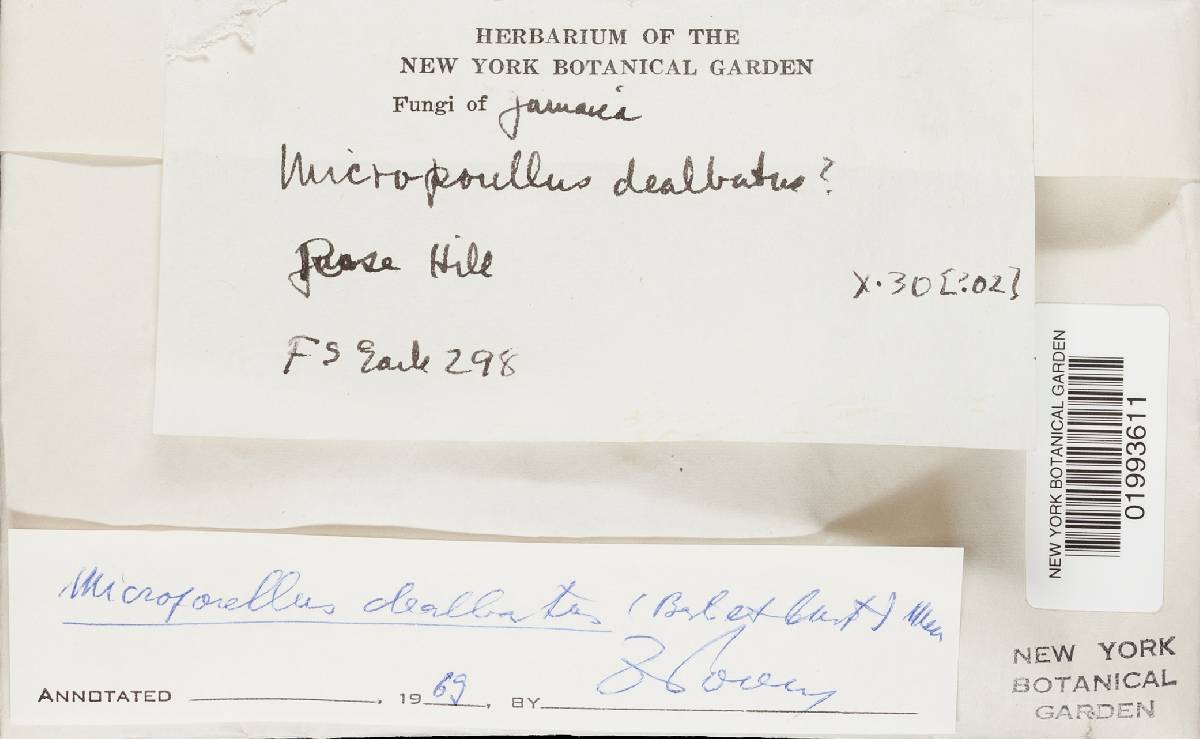 HERBARIUM OF THE
NEW YORK BOTANICAL GARDEN
Fungi of Jamaica
Microporellus dealbatus?
Rose Hill
X.30[?02]
FS Earle 298
NEW YORK BOTANICAL GARDEN
01993611
Microporellus dealbatus (Berk et Curt) Murr
ANNOTATED , 1969, BY
NEW YORK
BOTANICAL
GARDEN